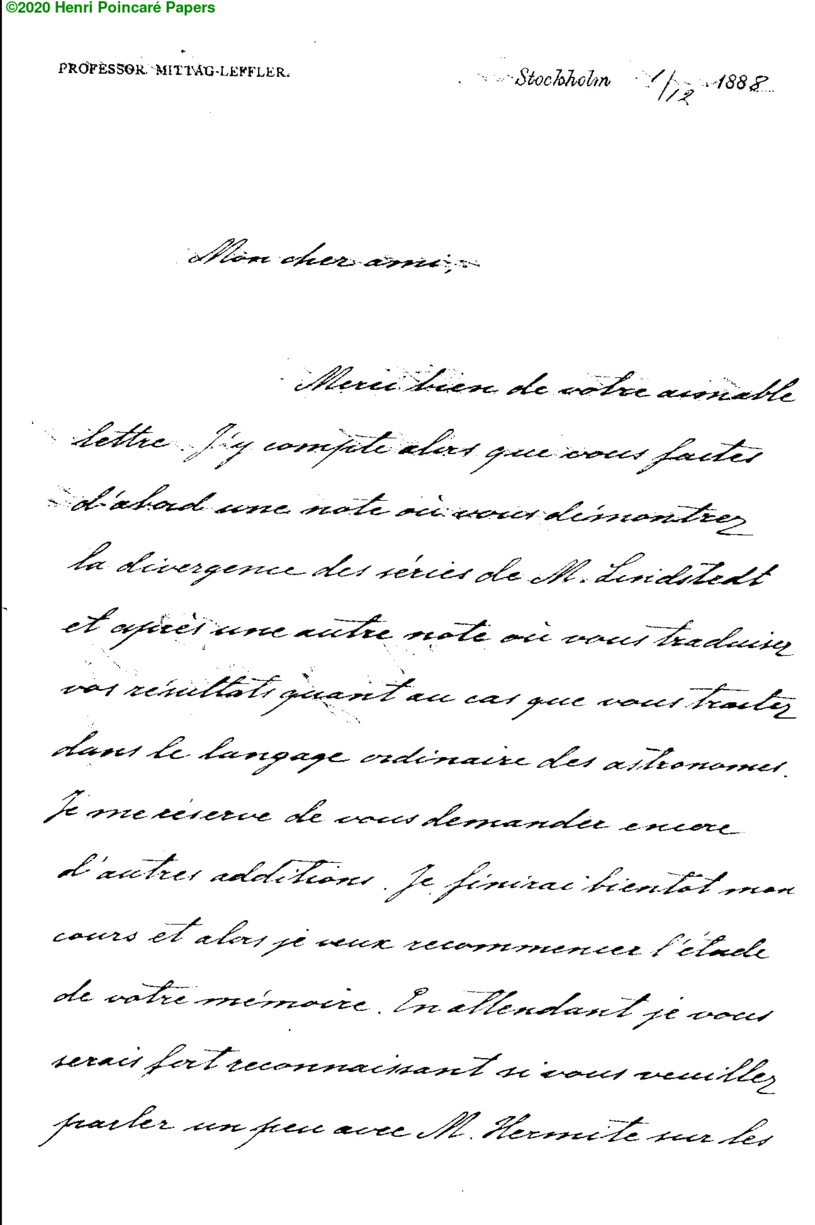 ©2020 Henri Poincaré Papers
PROFESSOR MITTAG-LEFFLER.
Stockholm 1/12 1888
Mon cher ami,
Merci bien de votre aimable
lettre. J'y compte alors que vous faites
d'abord une note où vous démontrez
la divergence des séries de M. Lindstedt
et après une autre note où vous traduisez
vos résultats quant au cas que vous traitez
dans le langage ordinaire des astronomes.
Je me réserve de vous demander encore
d'autres additions. Je finirai bientôt mon
cours et alors je veux recommencer l'étude
de votre mémoire. En attendant je vous
serais fort reconnaissant si vous veuillez
parler un peu avec M. Hermite sur les